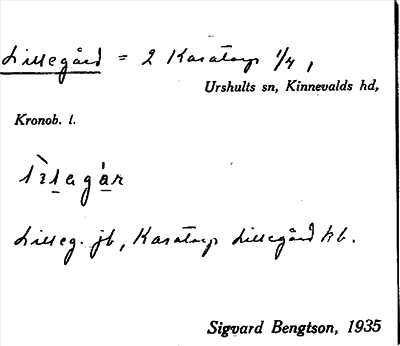 Lillegård = 2 Karatorp 1/4,
Urshults sn, Kinnevalds hd,
Kronob. l.
Lilleg. jb, Karatorp Lillegård kb.
Sigvard Bengtson, 1935